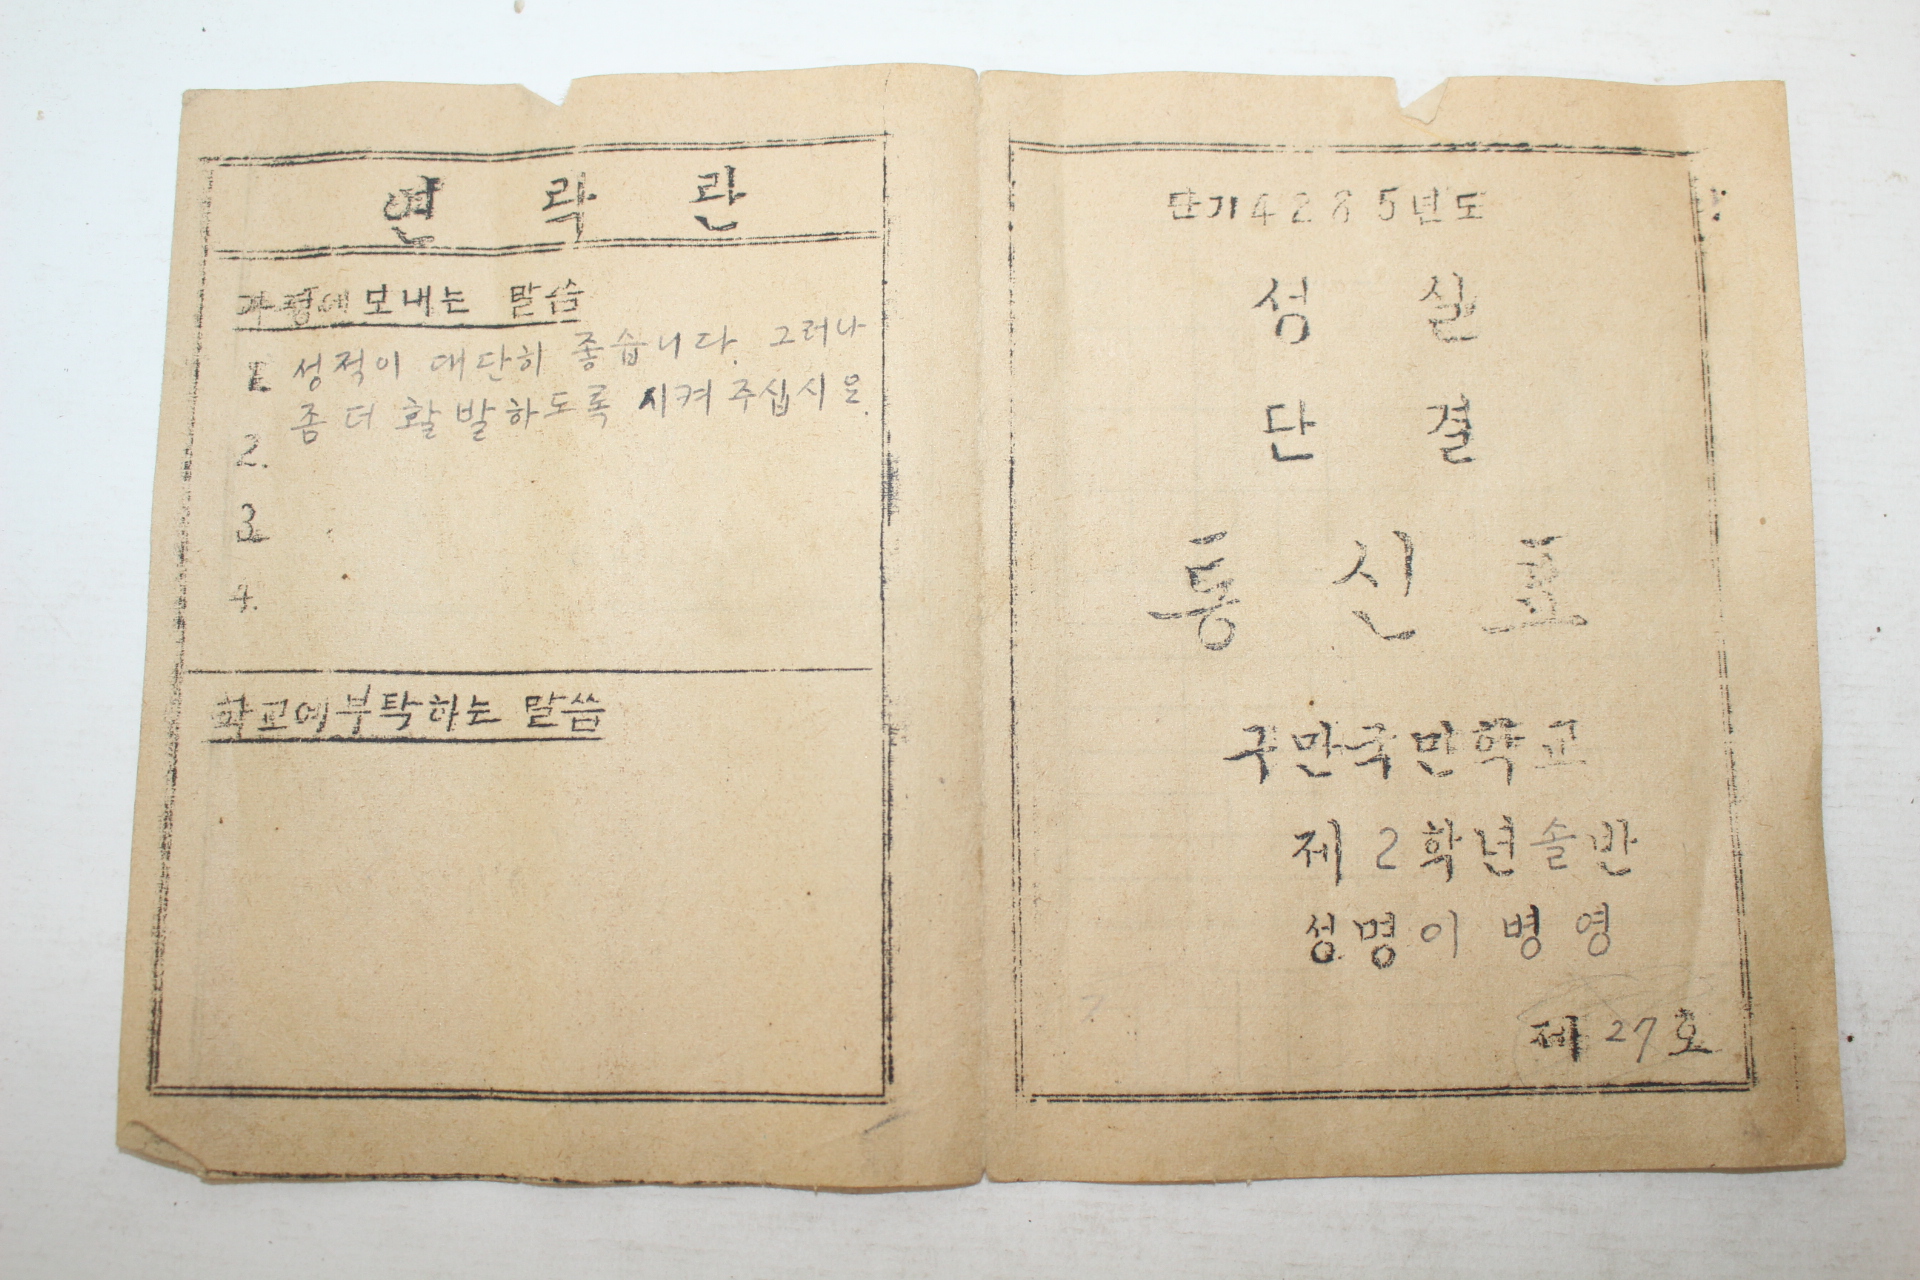 연락란
가정에보내는 말씀
1. 성적이 대단히 좋습니다. 그러나
좀 더 활발하도록 시켜 주십시요.
2.
3.
4.
학교에부탁하는 말씀
단기4285년도
성실
단결
통신표
구만국민학교
제2학년솔반
성명이병영
제27호